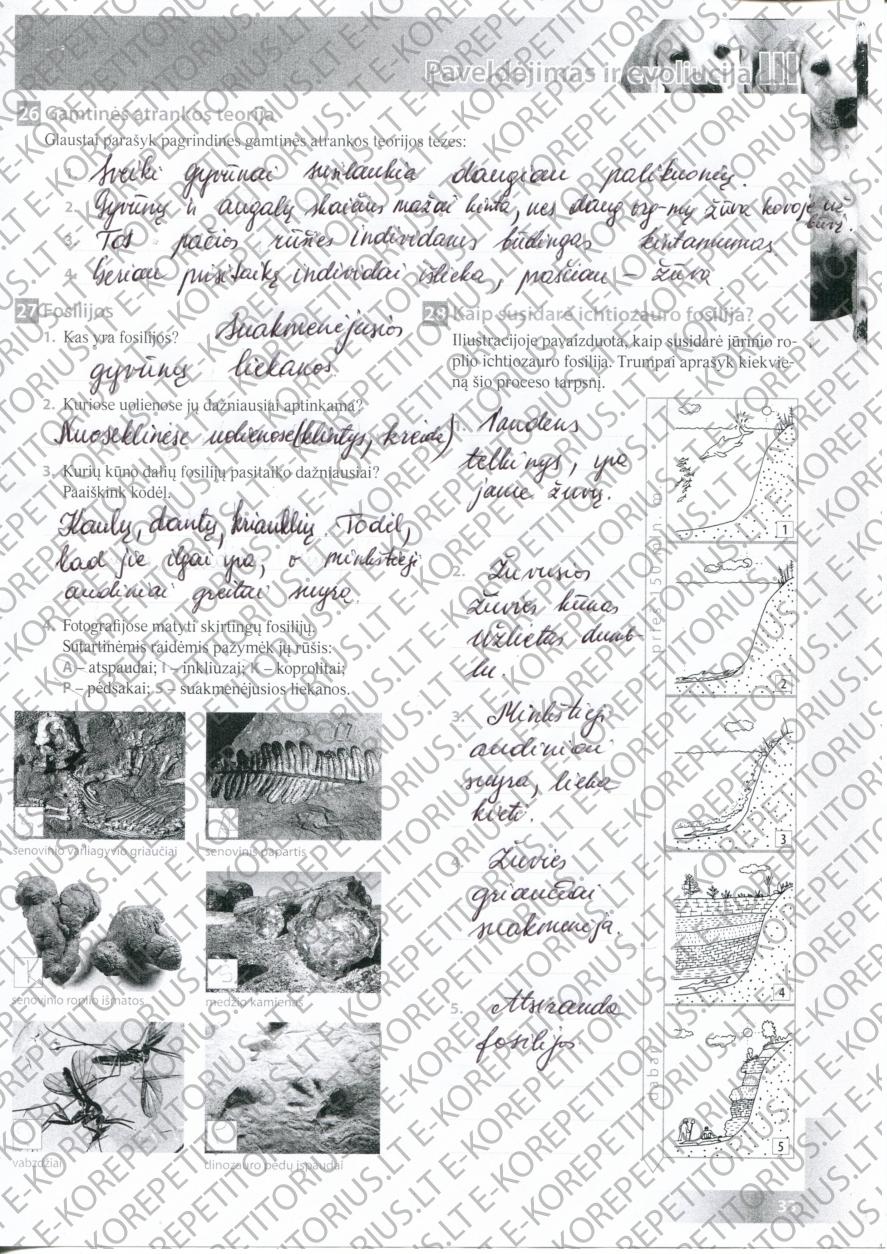 Paveldėjimas ir evoliucija III
26 Gamtinės atrankos teorija
Glaustai parašyk pagrindines gamtinės atrankos teorijos tezes:
1. Sveiki gyvūnai susilaukia daugiau palikuonių.
2. Gyvūnų ir augalų skaičius mažai kinta, nes daug org-mų žūva kovoje už
būvį.
3. Tos pačios rūšies individams būdingas kintamumas
4. Geriau prisitaikę individai išlieka, prasčiau – žūva
27 Fosilijos
1. Kas yra fosilijos? Suakmenėjusios
gyvūnų liekanos
2. Kuriose uolienose jų dažniausiai aptinkama?
Nuosėdinėse uolienose (klintys, kreida)
3. Kurių kūno dalių fosilijų pasitaiko dažniausiai?
Paaiškink kodėl.
Kaulų, dantų, kriauklių. Todėl,
kad jie ilgai yra, o minkštieji
audiniai greitai suyra.
4. Fotografijose matyti skirtingų fosilijų.
Sutartinėmis raidėmis pažymėk jų rūšis:
A – atspaudai; I – inkliuzai; K – koprolitai;
P – pėdsakai; S – suakmenėjusios liekanos.
senovinio varliagyvio griaučiai
senovinis papartis
senovinio roplio išmatos
medžio kamienas
vabzdžiai
dinozauro pėdų įspaudai
28 Kaip susidarė ichtiozauro fosilija?
Iliustracijoje pavaizduota, kaip susidarė jūrinio ro-
plio ichtiozauro fosilija. Trumpai aprašyk kiekvie-
ną šio proceso tarpsnį.
1. Vandens
telkinys, yra
jame žuvų.
2. Žuvusios
žuvies kūnas
užlietas dumb-
lu.
3. Minkštieji
audiniai
suyra, lieka
kieti.
4. Žuvies
griaučiai
suakmenėja.
5. Atsiranda
fosilijos
prieš 150 mln. m.
dabar
1
2
3
4
5
E-KOREPETITORIUS.LT